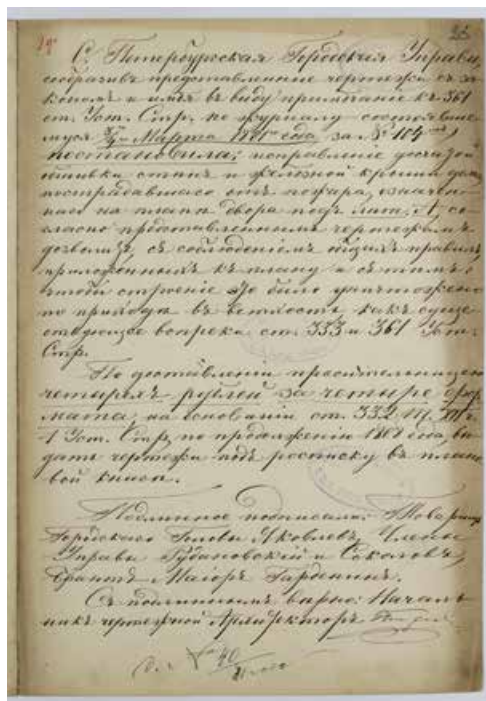 26
С. Петербургская Городская Управа,
сообразивъ представленные чертежи съ за-
кономъ и имѣя въ виду примѣчаніе къ 361
ст. Уст. Стр., по журналу состоявше-
муся Марта 1871 года, за № 104,
постановила: исправленіе досчатой
обшивки стѣнъ и желѣзной крыши дома,
пострадавшаго отъ пожара, означен-
наго на планѣ двора подъ лит. А, со-
гласно представленнымъ чертежамъ
дозволить, съ соблюденіемъ общихъ правилъ,
приложенныхъ къ плану и съ тѣмъ,
чтобы строеніе это было уничтожено
по приходѣ въ ветхость, какъ суще-
ствующее вопреки ст. 333 и 361 Уст.
Стр.
По доставленіи просительницею
четырехъ рублей за четыре фор-
мата, на основаніи ст. 332
1 Уст. Стр., по продолженію 1868 года, вы-
дать чертежи подъ росписку въ плано-
вой книгѣ.
Подлинное подписали: Товарищъ
Городскаго Головы Яковлевъ, Члены
Управы и Соколовъ,
Маіоръ
Съ подлиннымъ вѣрно: Началь-
никъ чертежной Архитекторъ
40